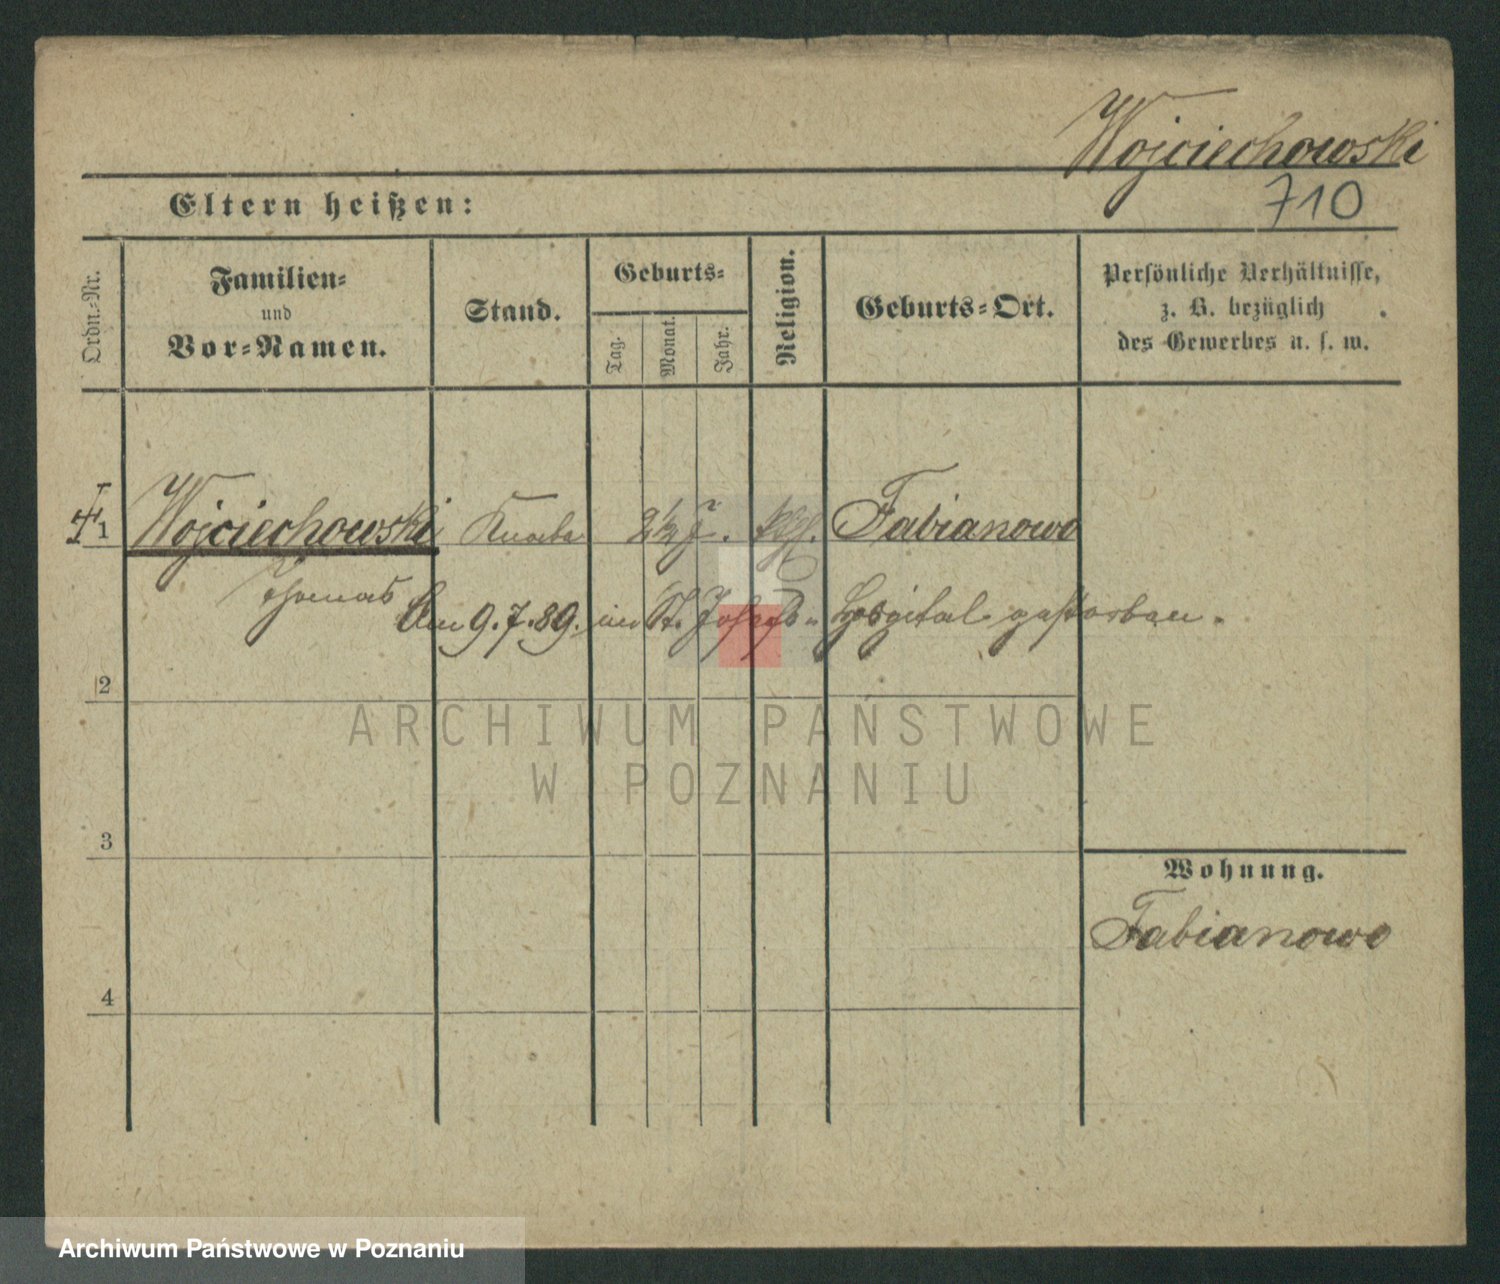 Wojciechowski
710
Eltern heißen:
Ordn.-Nr.
Familien-
und
Vor-Namen.
Stand.
Geburts-
Tag.
Monat.
Jahr.
Religion.
Geburts-Ort.
Persönliche Verhältnisse,
z. B. bezüglich
des Gewerbes u. s. w.
1 Wojciechowski Knabe 2½ J. kth. Fabianowo
Thomas
Am 9.7.89. im St. Josefs- Hospital gestorben.
2
3
4
Wohnung.
Fabianowo
ARCHIWUM PAŃSTWOWE
W POZNANIU
Archiwum Państwowe w Poznaniu